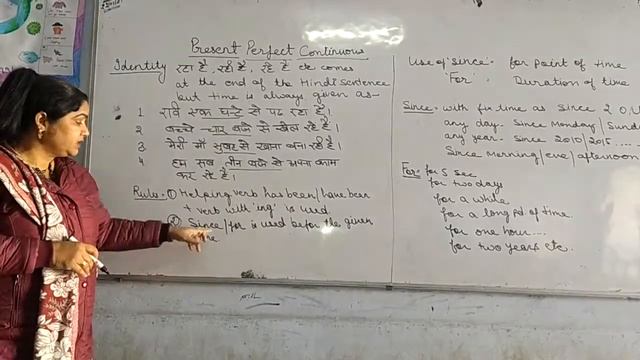 Present Perfect Continuous
Identity रहा है, रही है, रहे हैं etc comes
at the end of the Hindi Sentence
but time is always given as-
1 रवि एक घन्टे से पढ़ रहा है।
2 बच्चे चार बजे से खेल रहे हैं।
3 मेरी माँ सुबह से खाना बना रही है।
4 हम सब तीन बजे से अपना काम
कर रहे हैं।
Rule:- ① Helping verb has been/have been
+ verb with 'ing' is used
② Since/for is used befor the given
Use of 'Since'- for point of time
'For'- Duration of time
Since:- with fix time as Since 2 O'
any day. Since Monday/Sund
any year. Since 2010/2015 .....
Since Morning/eve/afternoon
For:- for 5 sec
for two days
for a while
for a long pd of time.
for one hour....
for two years etc.